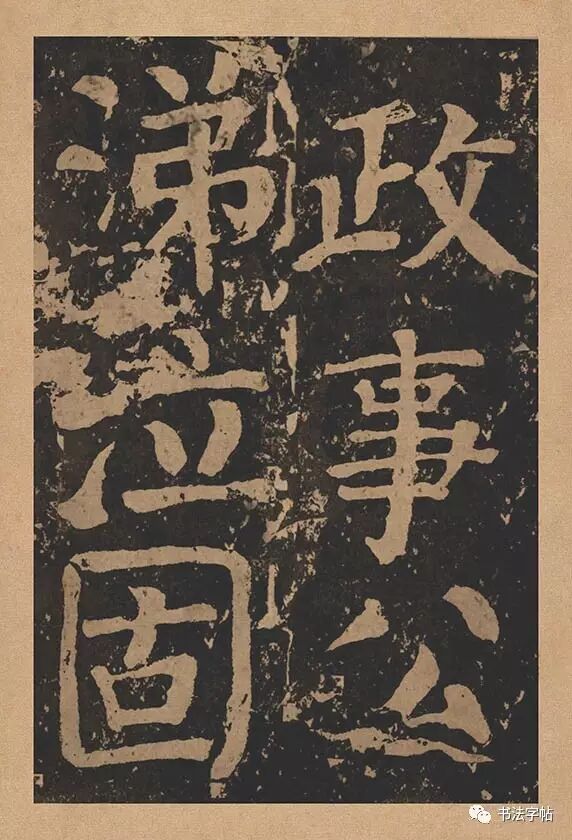 政事公
涕泣固
书法字帖